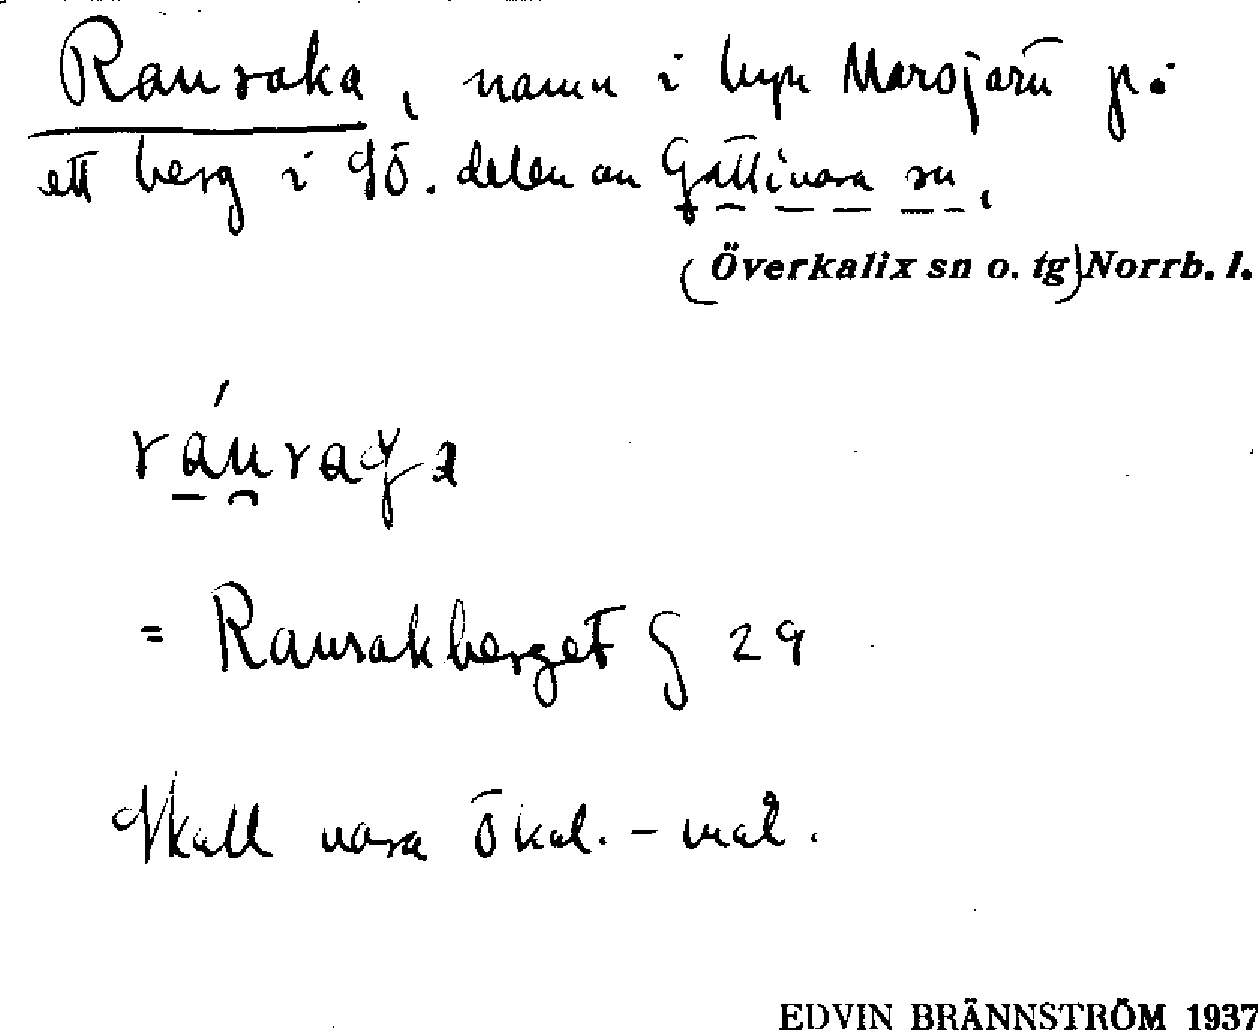 Rauraka, namn i byn Marsjärv på
ett berg i SÖ. delen av Gällivare sn,
(Överkalix sn o. tg) Norrb. l.
ráuraga
= Raurakberget § 29
Skall vara Ökal.-mål.
EDVIN BRÄNNSTRÖM 1937